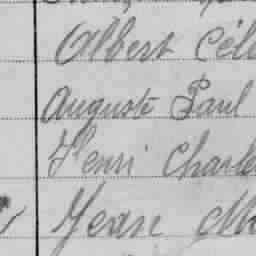 Albert Cél
Auguste Paul
Henri Charle
Jeane M